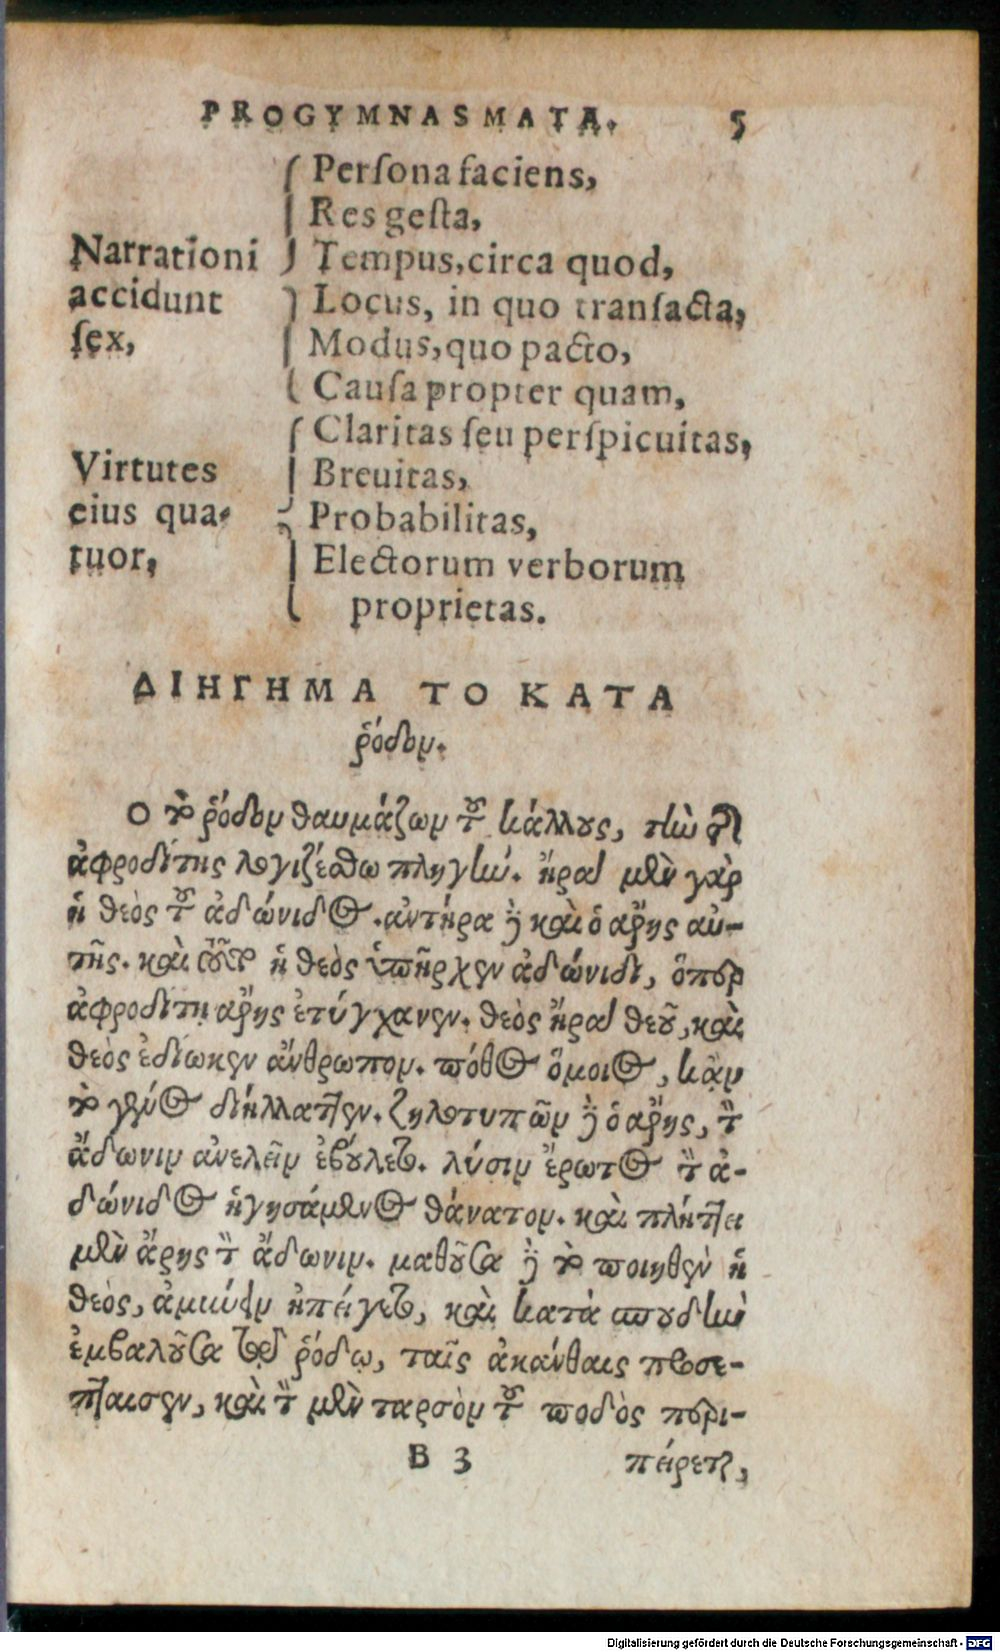 PROGYMNASMATA. 5
Perſona faciens,
Res geſta,
Narrationi Tempus, circa quod,
accidunt Locus, in quo tranſacta,
ſex, Modus, quo pacto,
Cauſa propter quam,
Claritas ſeu perſpicuitas,
Virtutes Breuitas,
eius qua- Probabilitas,
tuor, Electorum verborum
proprietas.
ΔΙΗΓΗΜΑ ΤΟ ΚΑΤΑ
ῥόδον.
Ο τὸ ῥόδον θαυμάζων τοῦ κάλλους, τὴν τῆς
ἀφροδίτης λογιζέσθω πληγήν. ἤρα μὲν γὰρ
ἡ θεὸς τοῦ ἀδώνιδος. ἀντήρα δὲ καὶ ὁ ἄρης αὐ-
τῆς. καὶ τοῦτο ἡ θεὸς ὑπῆρχεν ἀδώνιδι, ὅπερ
ἀφροδίτῃ ἄρης ἐτύγχανεν. θεὸς ἤρα θεοῦ, καὶ
θεὸς ἐδίωκεν ἄνθρωπον. πόθος ὅμοιος, κἂν
τὸ γένος διήλλαττεν. ζηλοτυπῶν δὲ ὁ ἄρης, τὸν
ἄδωνιν ἀνελεῖν ἐβούλετο. λύσιν ἔρωτος τὸν ἀ-
δώνιδος ἡγησάμενος θάνατον. καὶ πλήττει
μὲν ἄρης τὸν ἄδωνιν. μαθοῦσα δὲ τὸ ποιηθὲν ἡ
θεὸς, ἀμύνειν ἠπείγετο, καὶ κατὰ σπουδὴν
ἐμβαλοῦσα τῷ ῥόδῳ, ταῖς ἀκάνθαις προσε-
πταισεν, καὶ τὸν μὲν ταρσὸν τοῦ ποδὸς περι-
B 3 πείρεται,
Digitalisierung gefördert durch die Deutsche Forschungsgemeinschaft - DFG